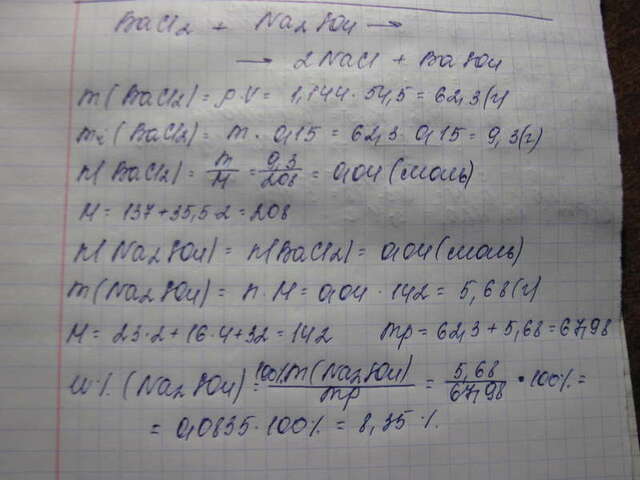 BaCl2 + Na2SO4 →
→ 2NaCl + BaSO4
m(BaCl2) = ρ·V = 1,144 · 54,5 = 62,3(г)
m2(BaCl2) = m · 0,15 = 62,3 · 0,15 = 9,3(г)
n(BaCl2) = m/M = 9,3/208 = 0,04 (моль)
M = 137 + 35,5·2 = 208
n(Na2SO4) = n(BaCl2) = 0,04 (моль)
m(Na2SO4) = n·M = 0,04 · 142 = 5,68(г)
M = 23·2 + 16·4 + 32 = 142 mp = 62,3 + 5,68 = 67,98
W% (Na2SO4) = 100% m(Na2SO4)/mp = 5,68/67,98 · 100% =
= 0,0835 · 100% = 8,35%.